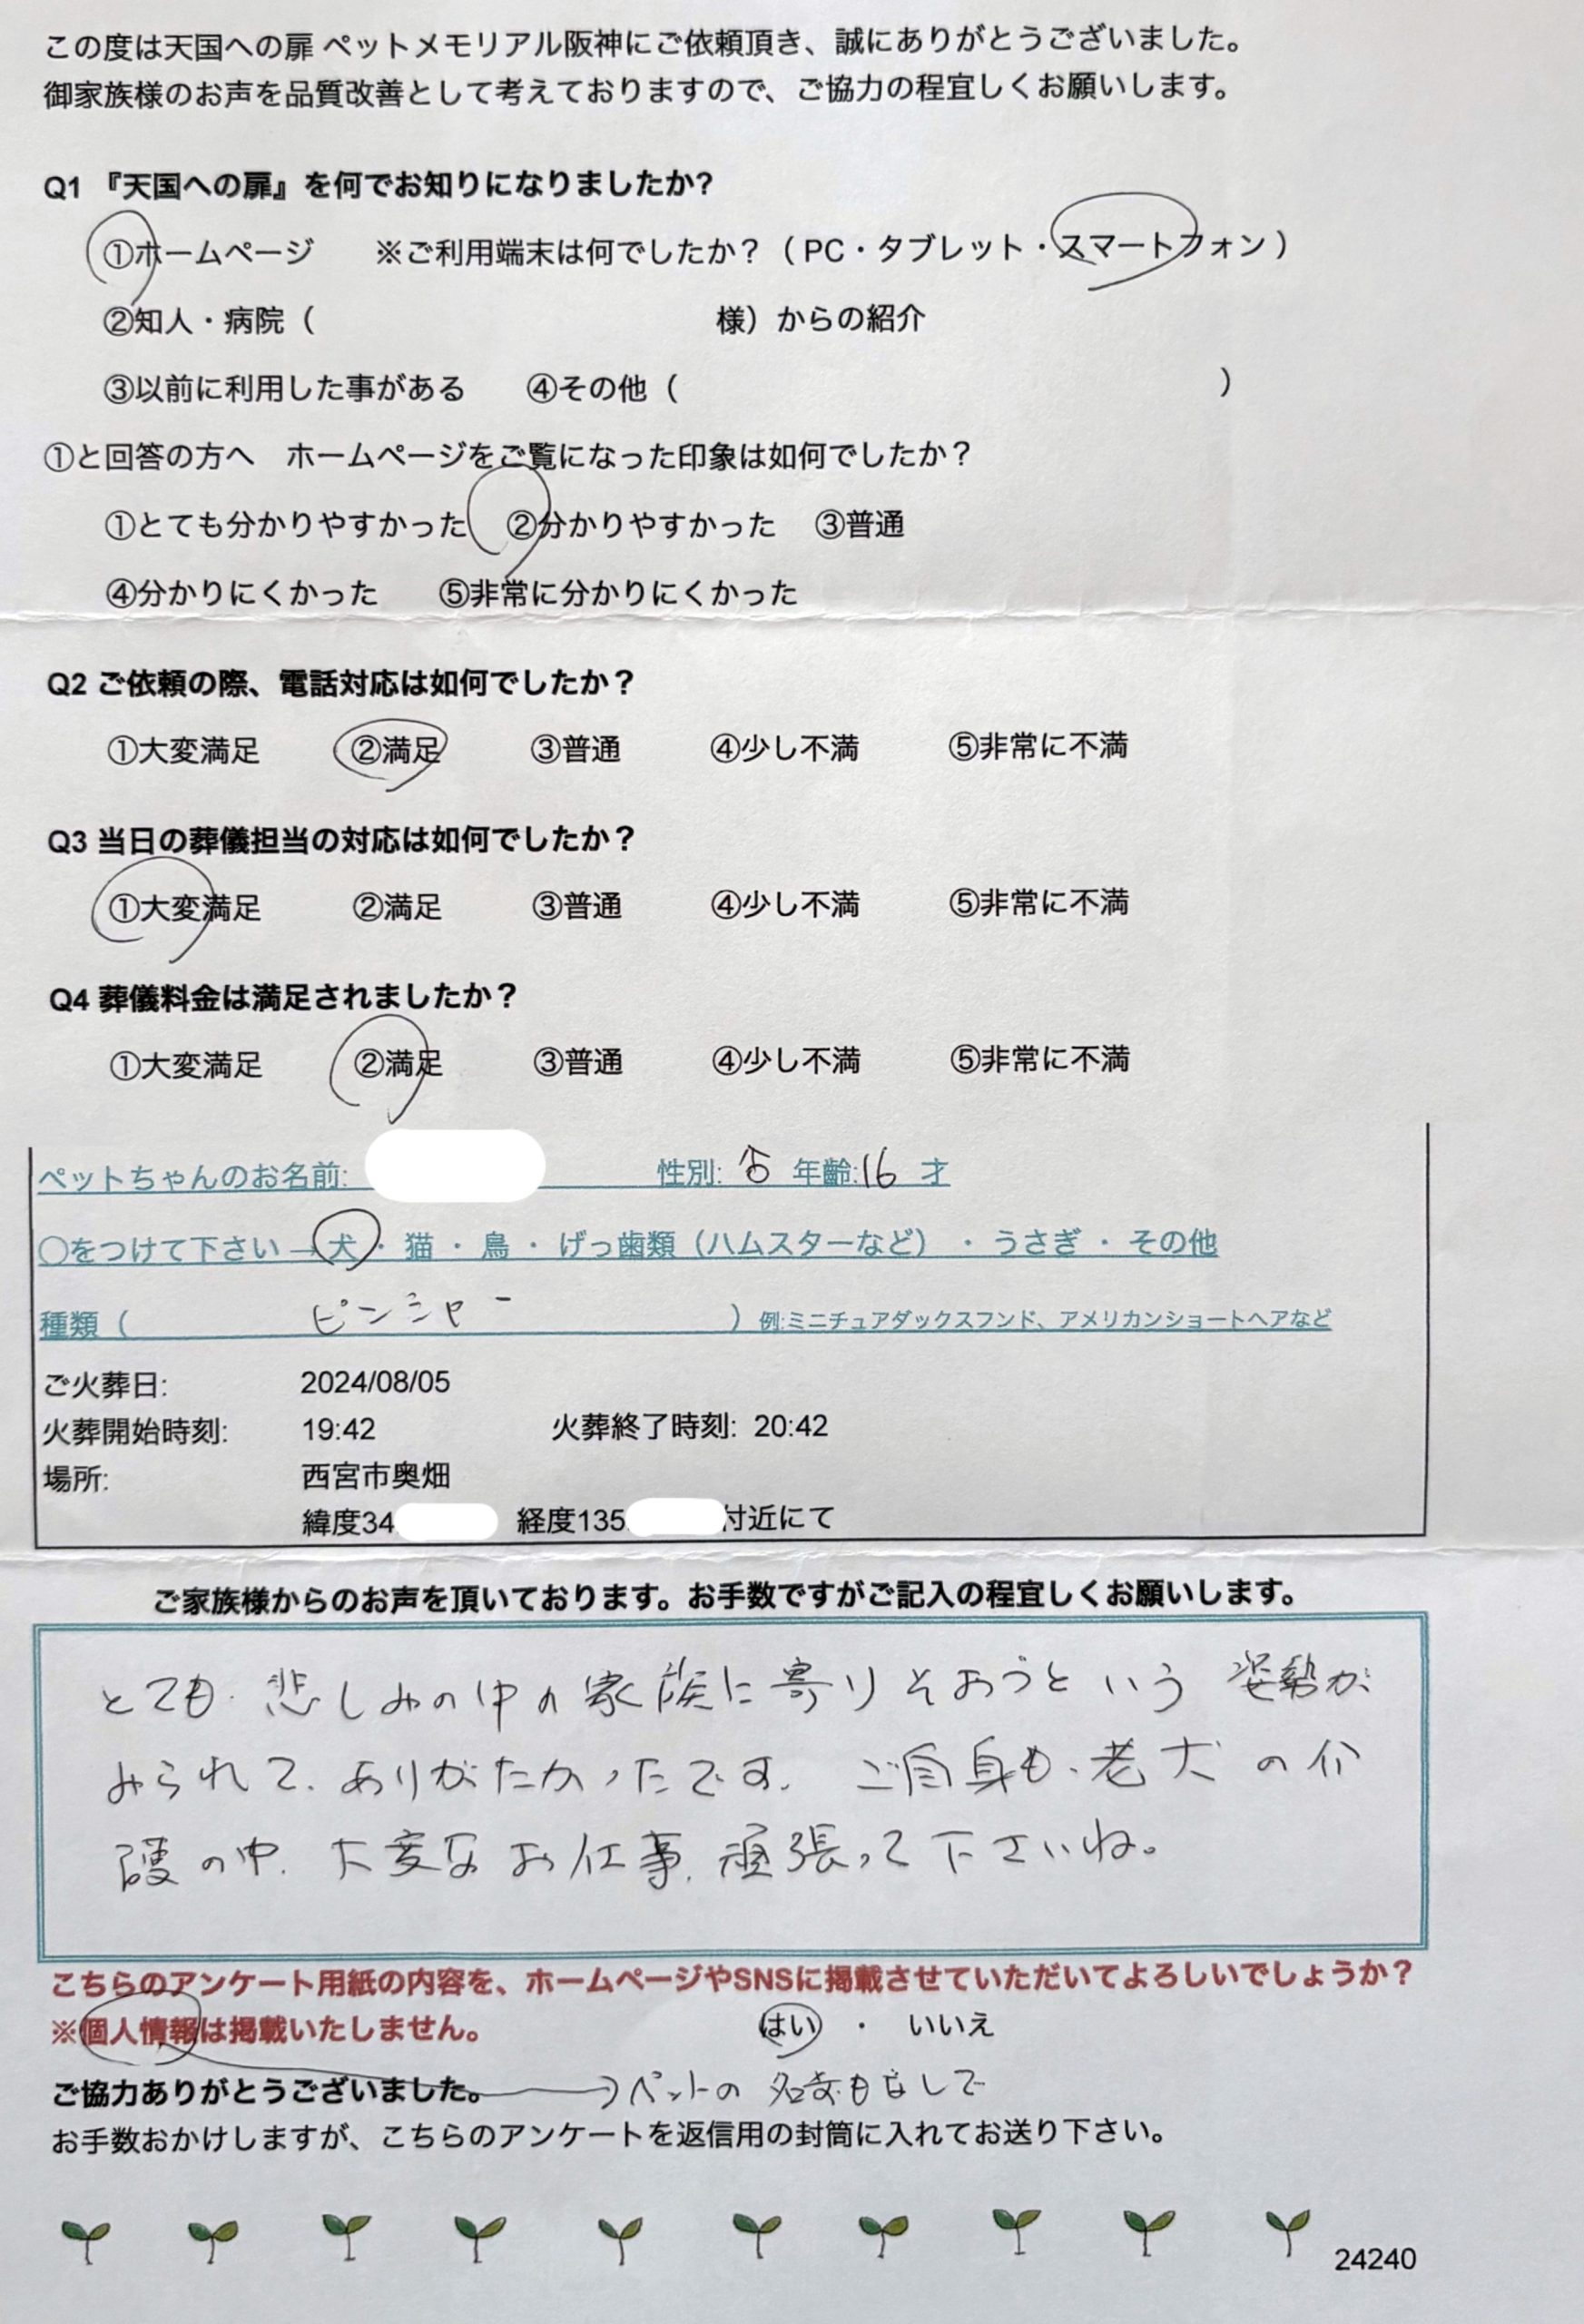 この度は天国への扉 ペットメモリアル阪神にご依頼頂き、誠にありがとうございました。
御家族様のお声を品質改善として考えておりますので、ご協力の程宜しくお願いします。
Q1 『天国への扉』を何でお知りになりましたか?
①ホームページ ※ご利用端末は何でしたか？（ PC・タブレット・スマートフォン ）
②知人・病院（ 様）からの紹介
③以前に利用した事がある ④その他（ ）
①と回答の方へ ホームページをご覧になった印象は如何でしたか？
①とても分かりやすかった ②分かりやすかった ③普通
④分かりにくかった ⑤非常に分かりにくかった
Q2 ご依頼の際、電話対応は如何でしたか？
①大変満足 ②満足 ③普通 ④少し不満 ⑤非常に不満
Q3 当日の葬儀担当の対応は如何でしたか？
①大変満足 ②満足 ③普通 ④少し不満 ⑤非常に不満
Q4 葬儀料金は満足されましたか？
①大変満足 ②満足 ③普通 ④少し不満 ⑤非常に不満
ペットちゃんのお名前: 性別: 年齢:16 才
○をつけて下さい→犬・猫・鳥・げっ歯類（ハムスターなど）・うさぎ・その他
種類（ ピンシャー ）例:ミニチュアダックスフンド、アメリカンショートヘアなど
ご火葬日: 2024/08/05
火葬開始時刻: 19:42 火葬終了時刻: 20:42
場所: 西宮市奥畑
緯度34 経度135. 付近にて
ご家族様からのお声を頂いております。お手数ですがご記入の程宜しくお願いします。
とても、悲しみの中の家族に寄りそおうという姿勢が
みられて、ありがたかったです。ご自身も、老犬の介
護の中、大変なお仕事、頑張って下さいね。
こちらのアンケート用紙の内容を、ホームページやSNSに掲載させていただいてよろしいでしょうか？
※個人情報は掲載いたしません。 はい ・ いいえ
ご協力ありがとうございました。 →ペットの名前もなしで
お手数おかけしますが、こちらのアンケートを返信用の封筒に入れてお送り下さい。
24240